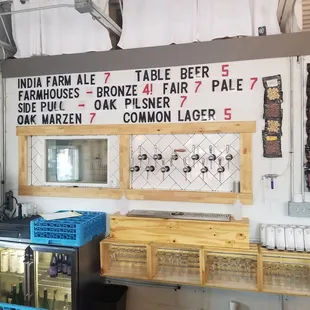 INDIA FARM ALE 7 TABLE BEER 5
FARMHOUSES - BRONZE 4! FAIR 7 PALE 7
SIDE PULL - OAK PILSNER 7
OAK MARZEN 7 COMMON LAGER 5